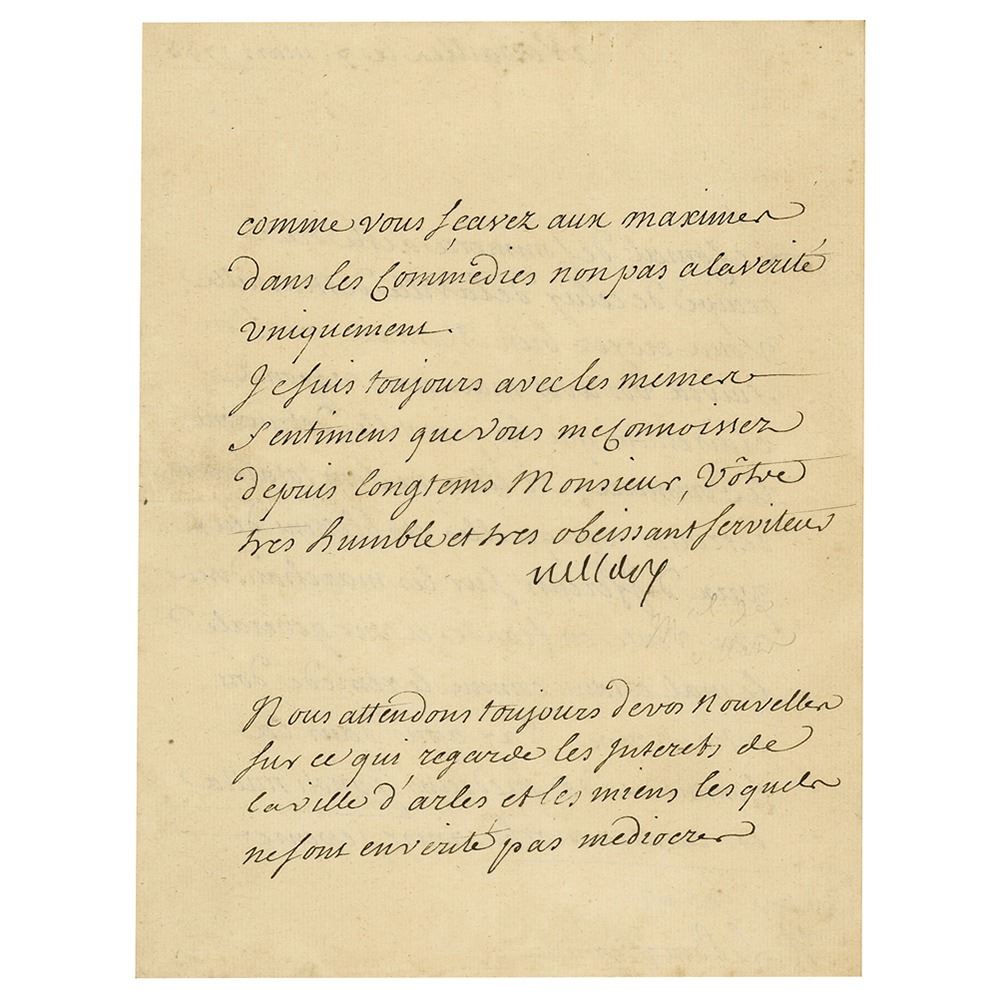 comme vous sçavez aux maximes
dans les Commêdies non pas a la verité
vniquement.
Je suis toujours avec les memes
sentimens que vous me Connoissez
depuis longtems Monsieur, Vôtre
tres humble et tres obeissant serviteur
Nous attendons toujours de vos Nouvelles
sur ce qui regarde les Interets de
la ville d'arles et les miens lesquels
ne sont en verité pas mediocres